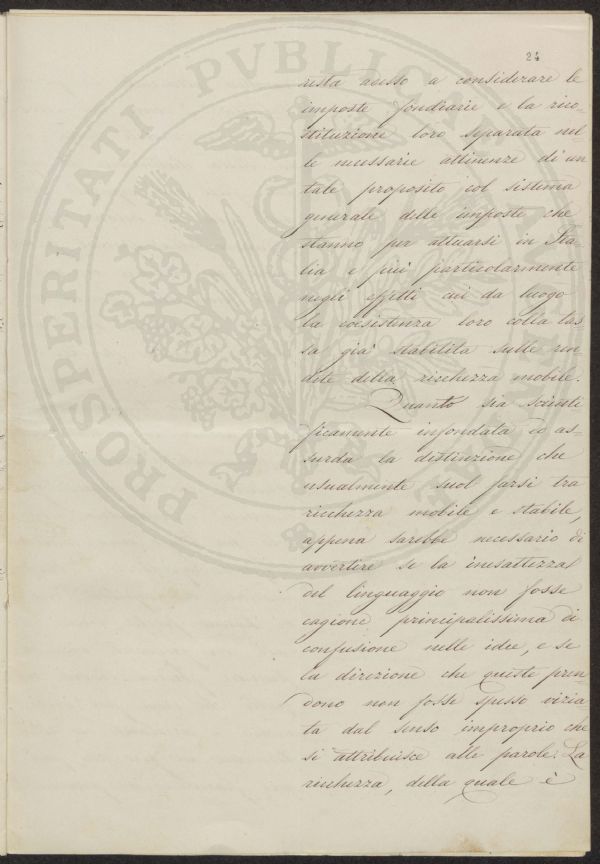 24
resta adesso a considerare le
imposte fondiarie e la rico-
stituzione loro separata nel
le necessarie attinenze di un
tale proposito col sistema
generale delle imposte che
stanno per attuarsi in Ita-
lia e più particolarmente
negli effetti cui da luogo
la coesistenza loro colla tas
sa già stabilita sulle ren
dite della ricchezza mobile.
Quanto sia scienti
ficamente infondata ed as-
surda la distinzione che
usualmente suol farsi tra
ricchezza mobile e stabile,
appena sarebbe necessario di
avvertire se la inesattezza
del linguaggio non fosse
cagione principalissima di
confusione nelle idee, e se
la direzione che queste pren-
dono non fosse spesso vizia-
ta dal senso improprio che
si attribuisce alle parole. La
ricchezza, della quale è
PROSPERITATI PVBLICAE